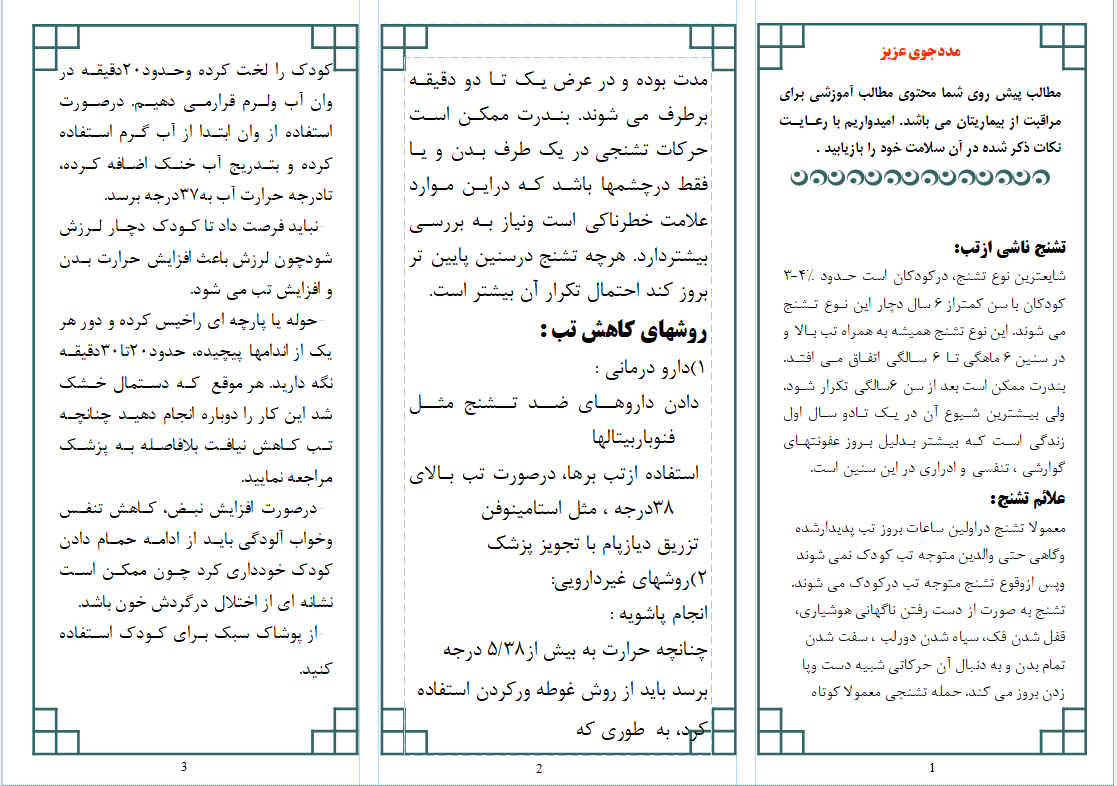 مددجوی عزیز
مطالب پیش روی شما محتوی مطالب آموزشی برای
مراقبت از بیماریتان می باشد. امیدواریم با رعایت
نکات ذکر شده در آن سلامت خود را بازیابید .
تشنج ناشی ازتب:
شایعترین نوع تشنج، درکودکان است حدود ۴٪-۳
کودکان با سن کمتراز ۶ سال دچار این نوع تشنج
می شوند. این نوع تشنج همیشه به همراه تب بالا و
در سنین ۶ ماهگی تا ۶ سالگی اتفاق می افتد.
بندرت ممکن است بعد از سن ۶سالگی تکرار شود.
ولی بیشترین شیوع آن در یک تادو سال اول
زندگی است که بیشتر بدلیل بروز عفونتهای
گوارشی ، تنفسی و ادراری در این سنین است.
علائم تشنج:
معمولا تشنج دراولین ساعات بروز تب پدیدارشده
وگاهی حتی والدین متوجه تب کودک نمی شوند
وپس ازوقوع تشنج متوجه تب درکودک می شوند.
تشنج به صورت از دست رفتن ناگهانی هوشیاری،
قفل شدن فک، سیاه شدن دورلب ، سفت شدن
تمام بدن و به دنبال آن حرکاتی شبیه دست وپا
زدن بروز می کند. حمله تشنجی معمولا کوتاه
1
مدت بوده و در عرض یک تا دو دقیقه
برطرف می شوند. بندرت ممکن است
حرکات تشنجی در یک طرف بدن و یا
فقط درچشمها باشد که دراین موارد
علامت خطرناکی است ونیاز به بررسی
بیشتردارد. هرچه تشنج درسنین پایین تر
بروز کند احتمال تکرار آن بیشتر است.
روشهای کاهش تب :
۱)دارو درمانی :
دادن داروهای ضد تشنج مثل
فنوباربیتالها
استفاده ازتب برها، درصورت تب بالای
۳۸درجه ، مثل استامینوفن
تزریق دیازپام با تجویز پزشک
۲)روشهای غیردارویی:
انجام پاشویه :
چنانچه حرارت به بیش از۵/۳۸ درجه
برسد باید از روش غوطه ورکردن استفاده
کرد، به طوری که
2
کودک را لخت کرده وحدود۲۰دقیقه در
وان آب ولرم قرارمی دهیم. درصورت
استفاده از وان ابتدا از آب گرم استفاده
کرده و بتدریج آب خنک اضافه کرده،
تادرجه حرارت آب به۳۷درجه برسد.
-نباید فرصت داد تا کودک دچار لرزش
شودچون لرزش باعث افزایش حرارت بدن
و افزایش تب می شود.
-حوله یا پارچه ای راخیس کرده و دور هر
یک از اندامها پیچیده، حدود۲۰تا۳۰دقیقه
نگه دارید. هر موقع که دستمال خشک
شد این کار را دوباره انجام دهید چنانچه
تب کاهش نیافت بلافاصله به پزشک
مراجعه نمایید.
-درصورت افزایش نبض، کاهش تنفس
وخواب آلودگی باید از ادامه حمام دادن
کودک خودداری کرد چون ممکن است
نشانه ای از اختلال درگردش خون باشد.
-از پوشاک سبک برای کودک استفاده
کنید.
3